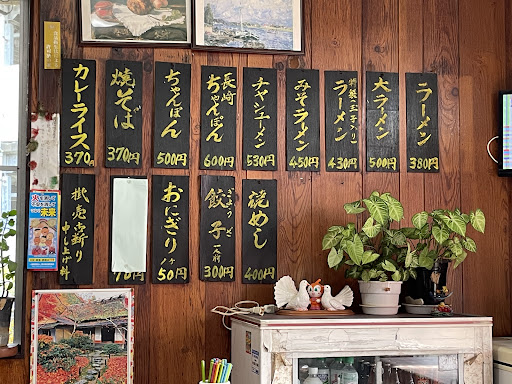 ラーメン
380円
大ラーメン
500円
特製(玉子入り)
ラーメン
430円
みそラーメン
450円
チャシューメン
530円
長崎
ちゃんぽん
600円
ちゃんぽん
500円
焼そば
370円
カレーライス
370円
焼めし
400円
ぎょうざ
餃子
一人前
300円
おにぎり
1ヶ
50円
押売お断り
申し上げ
未来